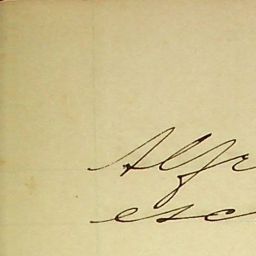 Alfr
esc